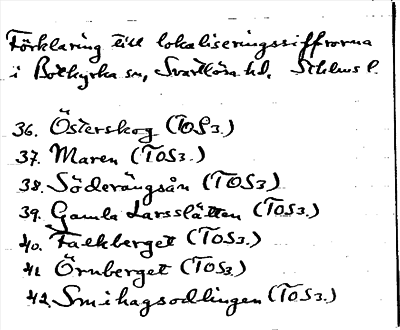 Förklaring till lokaliseringssiffrorna
i Botkyrka sn, Svartlösa hd, Sthlms l.
36. Österskog (TOS3.)
37. Maren (TOS3.)
38. Söderängsån (TOS3)
39. Gamla Larsslätten (TOS3.)
40. Falkberget (TOS3.)
41 Örnberget (TOS3.)
42 Smihagsodlingen (TOS3.)